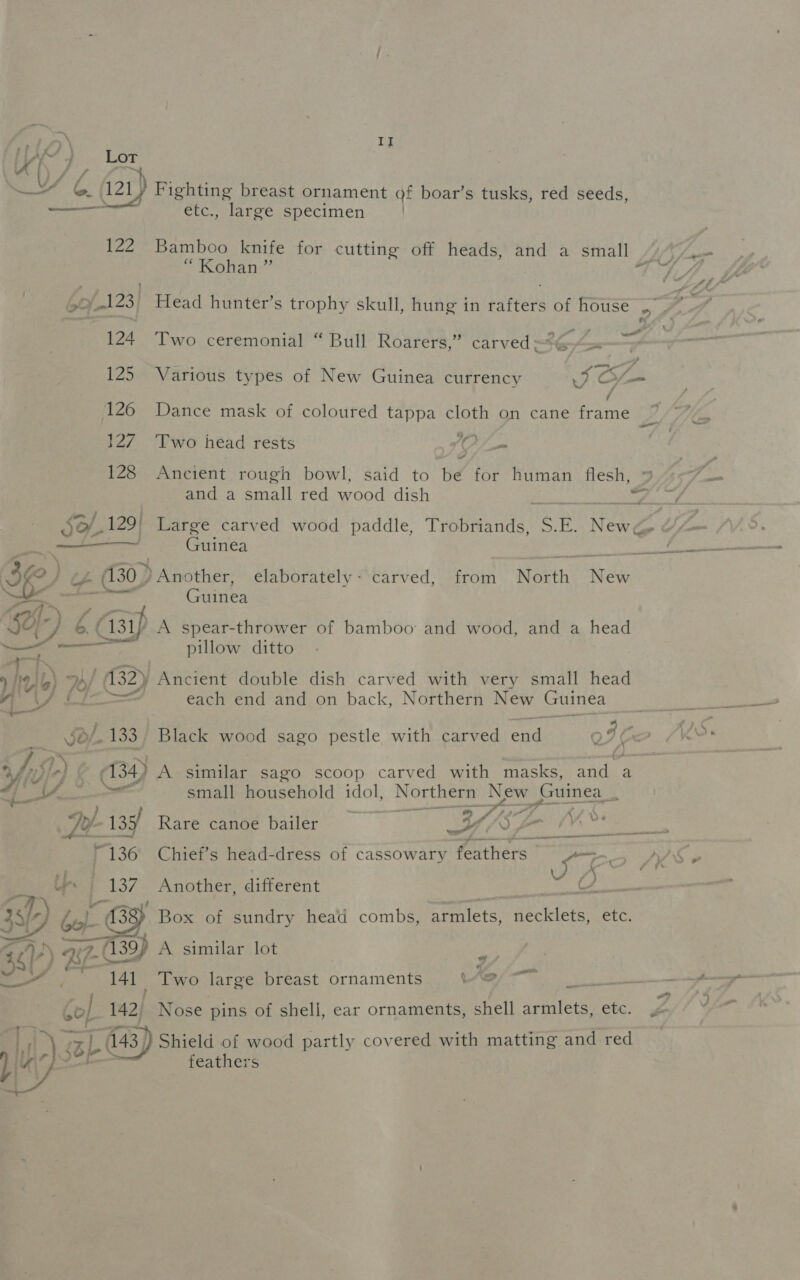 11
Lot
6. 121) Fighting breast ornament of boar's tusks, red seeds,
etc., large specimen
122 Bamboo knife for cutting off heads, and a small
“Kohan”
60/. 123 Head hunter's trophy skull, hung in rafters of house
124 Two ceremonial “Bull Roarers,” carved
125 Various types of New Guinea currency
126 Dance mask of coloured tappa cloth on cane frame
127 Two head rests
128 Ancient rough bowl, said to be for human flesh,
and a small red wood dish
50/. 129 Large carved wood paddle, Trobriands, S.E. New
Guinea
130 Another, elaborately carved, from North New
Guinea
6. 131 A spear-thrower of bamboo and wood, and a head
pillow ditto
132 Ancient double dish carved with very small head
each end and on back, Northern New Guinea
50/. 133 Black wood sago pestle with carved end
134 A similar sago scoop carved with masks, and a
small household idol, Northern New Guinea
135 Rare canoe bailer
136 Chief's head-dress of cassowary feathers
137 Another, different
35/-) 60/- 138 Box of sundry head combs, armlets, necklets, etc.
139 A similar lot
141 Two large breast ornaments
60/. 142 Nose pins of shell, ear ornaments, shell armlets, etc.
143 Shield of wood partly covered with matting and red
feathers